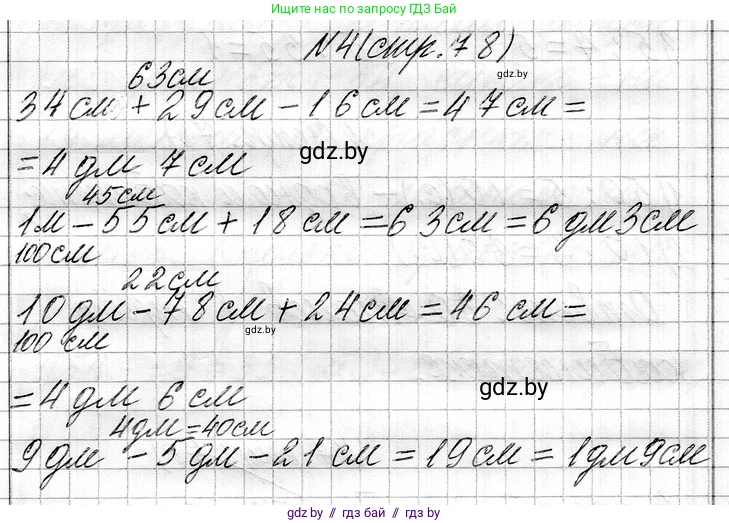 Ищите нас по запросу ГДЗ Бай
N4(стр. 78)
gdz.by
63см
34см + 29см - 16см = 47см =
= 4 дм 7см
gdz.by
45см
1м - 55см + 18см = 63см = 6 дм 3см
100см
22см
10дм - 78см + 24см = 46 см =
100 см
gdz.by
= 4 дм 6 см
gdz.by
4дм = 40см
9дм - 5дм - 21см = 19см = 1дм 9см
gdz.by // гдз бай // gdz.by